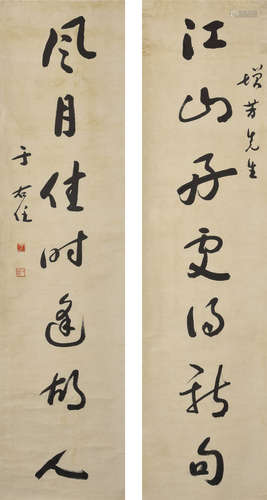 江山好處得新句
增芳先生
風月佳時逢故人
于右任